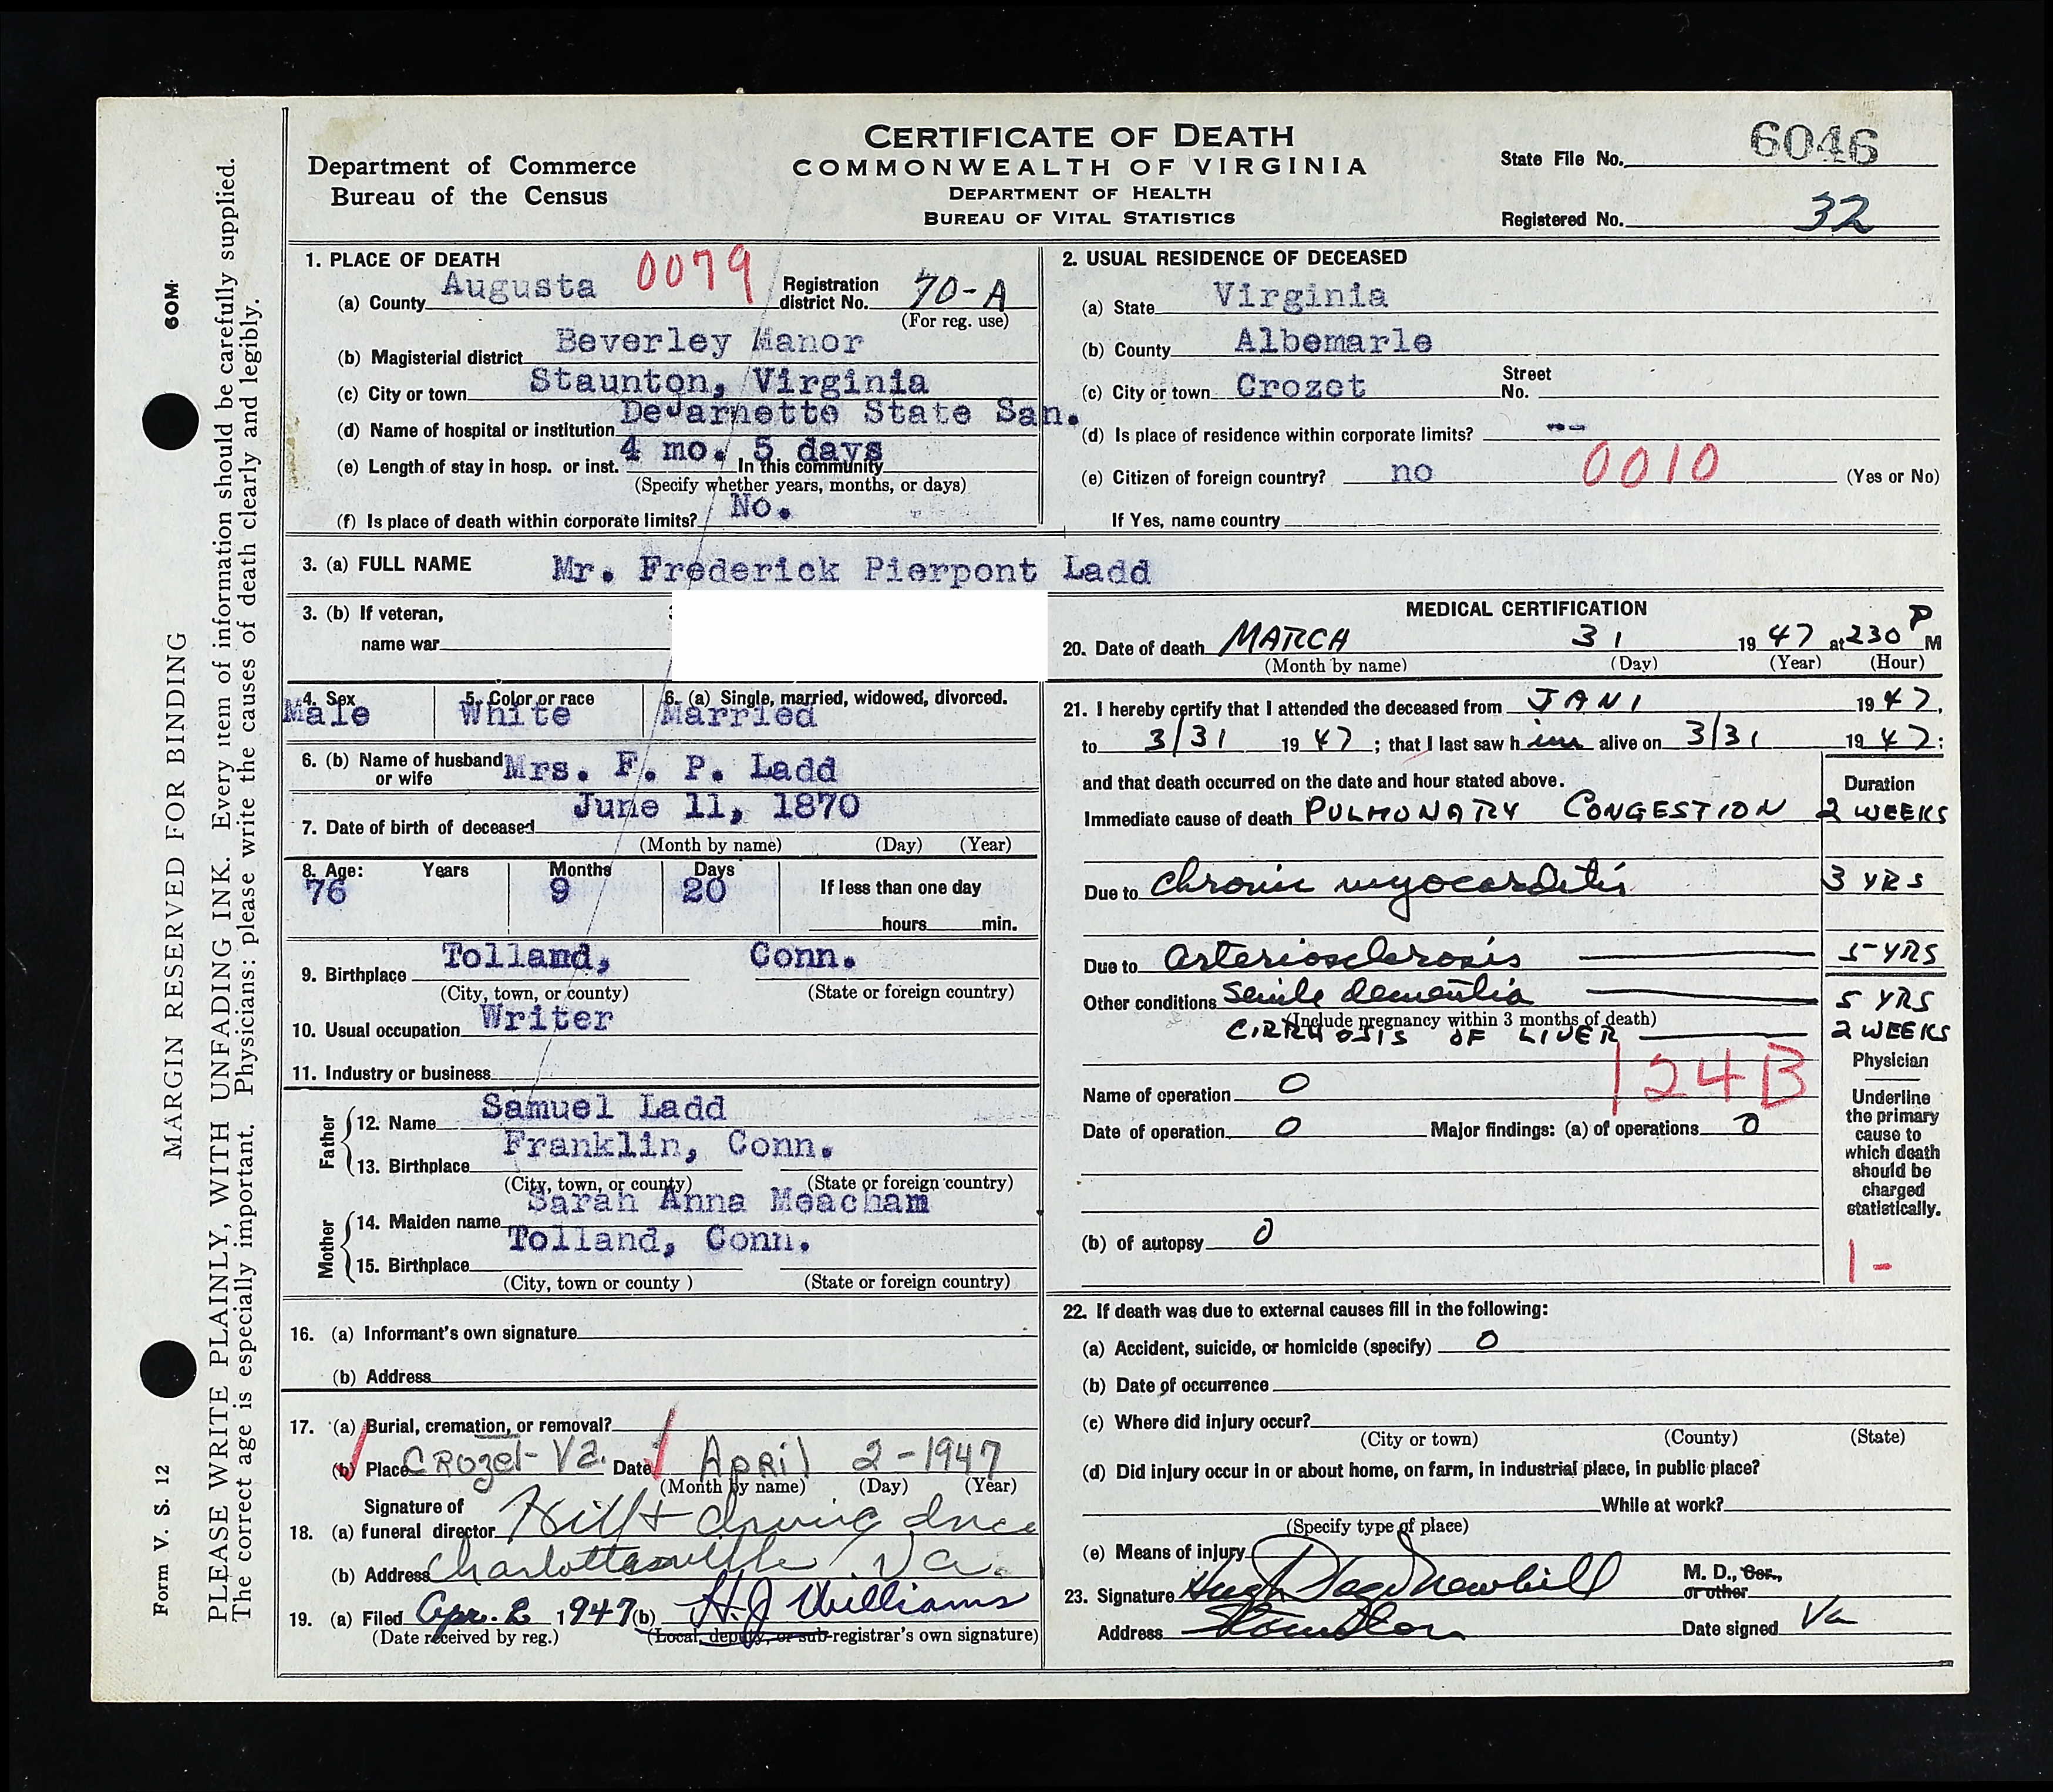 CERTIFICATE OF DEATH
COMMONWEALTH OF VIRGINIA
DEPARTMENT OF HEALTH
BUREAU OF VITAL STATISTICS
Department of Commerce
Bureau of the Census
State File No. 6046
Registered No. 32
MARGIN RESERVED FOR BINDING 60M.
PLEASE WRITE PLAINLY, WITH UNFADING INK. Every item of information should be carefully supplied.
The correct age is especially important. Physicians: please write the causes of death clearly and legibly.
Form V. S. 12
1. PLACE OF DEATH 0079
(a) County Augusta Registration district No. 70-A
(For reg. use)
(b) Magisterial district Beverley Manor
(c) City or town Staunton, Virginia
(d) Name of hospital or institution DeJarnette State San.
(e) Length of stay in hosp. or inst. 4 mo. 5 days In this community
(Specify whether years, months, or days)
(f) Is place of death within corporate limits? No.
2. USUAL RESIDENCE OF DECEASED
(a) State Virginia
(b) County Albemarle
(c) City or town Crozet Street No.
(d) Is place of residence within corporate limits? --
(e) Citizen of foreign country? no 0010 (Yes or No)
If Yes, name country
3. (a) FULL NAME Mr. Frederick Pierpont Ladd
3. (b) If veteran,
name war
4. Sex Male
5. Color or race White
6. (a) Single, married, widowed, divorced. Married
6. (b) Name of husband or wife Mrs. F. P. Ladd
7. Date of birth of deceased June 11, 1870
(Month by name) (Day) (Year)
8. Age: Years Months Days If less than one day
76 9 20
hours min.
9. Birthplace Tolland, Conn.
(City, town, or county) (State or foreign country)
10. Usual occupation Writer
11. Industry or business
Father
12. Name Samuel Ladd
13. Birthplace Franklin, Conn.
(City, town, or county) (State or foreign country)
Mother
14. Maiden name Sarah Anna Meacham
15. Birthplace Tolland, Conn.
(City, town or county ) (State or foreign country)
16. (a) Informant's own signature
(b) Address
17. (a) Burial, cremation, or removal?
(b) Place Crozet-Va. Date April 2-1947
(Month by name) (Day) (Year)
Signature of
18. (a) funeral director Hill & Irving Inc
(b) Address Charlottesville, Va.
19. (a) Filed Apr. 2 1947 (b) H. J. Williams
(Date received by reg.) (Local, deputy, or sub-registrar's own signature)
MEDICAL CERTIFICATION
20. Date of death MARCH 31 1947 at 230 P M
(Month by name) (Day) (Year) (Hour)
21. I hereby certify that I attended the deceased from JAN 1 1947,
to 3/31 1947; that I last saw him alive on 3/31 1947:
and that death occurred on the date and hour stated above. Duration
Immediate cause of death PULMONARY CONGESTION 2 WEEKS
Due to chronic myocarditis 3 YRS
Due to arteriosclerosis 5 YRS
Other conditions senile dementia 5 YRS
(Include pregnancy within 3 months of death)
CIRRHOSIS OF LIVER 2 WEEKS
124B
Name of operation 0
Date of operation 0 Major findings: (a) of operations 0
Physician
Underline
the primary
cause to
which death
should be
charged
statistically.
1-
(b) of autopsy 0
22. If death was due to external causes fill in the following:
(a) Accident, suicide, or homicide (specify) 0
(b) Date of occurrence
(c) Where did injury occur?
(City or town) (County) (State)
(d) Did injury occur in or about home, on farm, in industrial place, in public place?
While at work?
(Specify type of place)
(e) Means of injury
23. Signature Hugh Page Newbill M. D., Cor., or other
Address Staunton Date signed Va